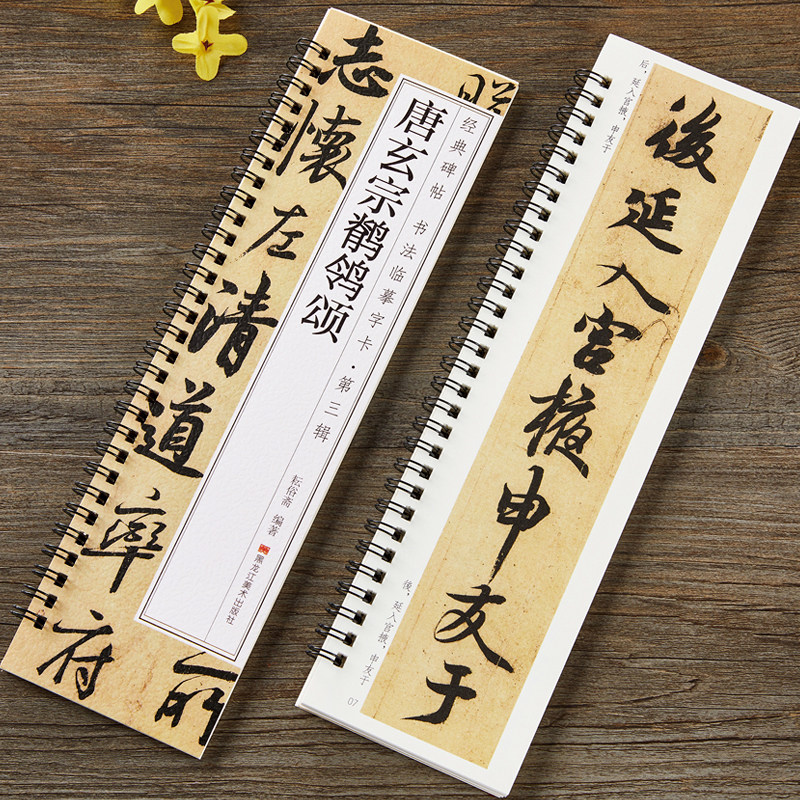 志懷左清道率府
经典碑帖 书法临摹字卡·第三辑
唐玄宗鹡鸰颂
耘俗斋 编著
黑龙江美术出版社
后,延入宫掖,申友于
後延入宮掖申友于
後,延入宮掖,申友于
07